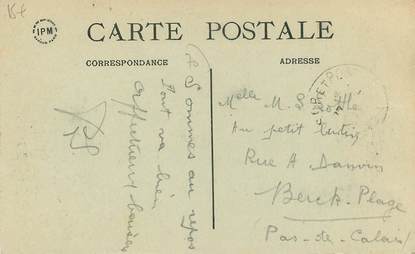 IPM
CARTE POSTALE
CORRESPONDANCE
ADRESSE
Sommes au repos
Tout va bien
Affectueux baisers
Melle M. S
Au petit
Rue A Danvin
Berck-Plage
Pas-de-Calais